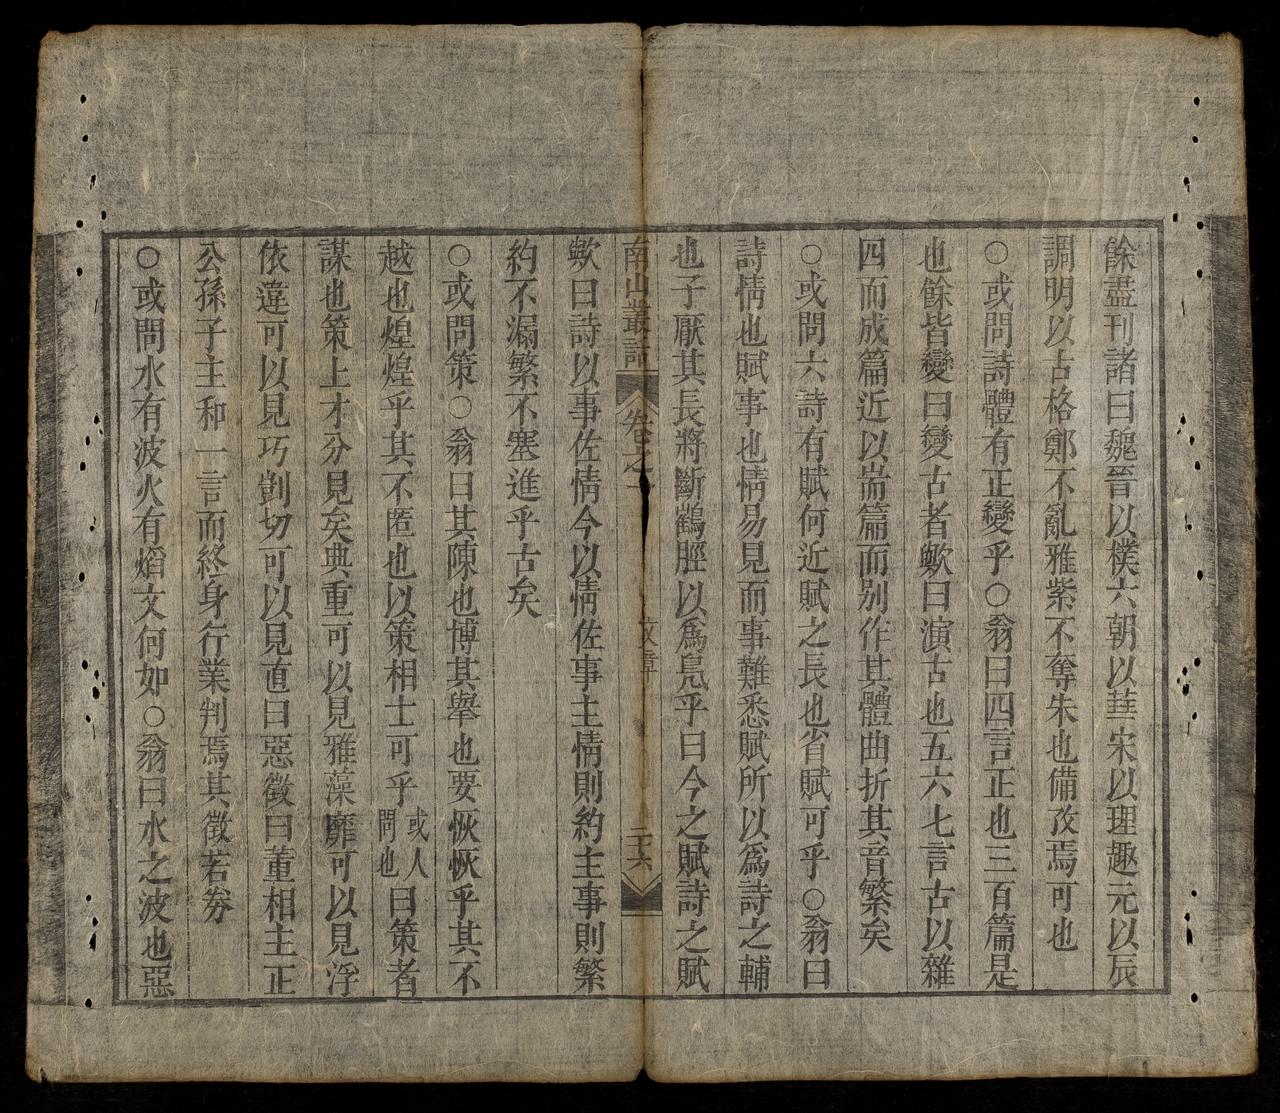 餘盡刊諸曰魏晉以樸六朝以華宋以理趣元以辰
調明以古格鄭不亂雅紫不奪朱也備攷焉可也
○或問詩體有正變乎○翁曰四言正也三百篇是
也餘皆變曰變古者歟曰演古也五六七言古以雜
四而成篇近以耑篇而别作其體曲折其音繁矣
○或問六詩有賦何近賦之長也省賦可乎○翁曰
詩情也賦事也情易見而事難悉賦所以爲詩之輔
也子厭其長將斷鶴脛以爲鳧乎曰今之賦詩之賦
南山叢話 卷之一 文章 二十六
歟曰詩以事佐情今以情佐事主情則約主事則繁
約不漏繁不塞進乎古矣
○或問策○翁曰其陳也博其舉也要恢恢乎其不
越也煌煌乎其不匿也以策相士可乎或人問也曰策者
謀也策上才分見矣典重可以見雅藻靡可以見浮
依違可以見巧剴切可以見直曰惡徵曰董相主正
公孫子主和一言而終身行業判焉其徵若券
○或問水有波火有熖文何如○翁曰水之波也惡